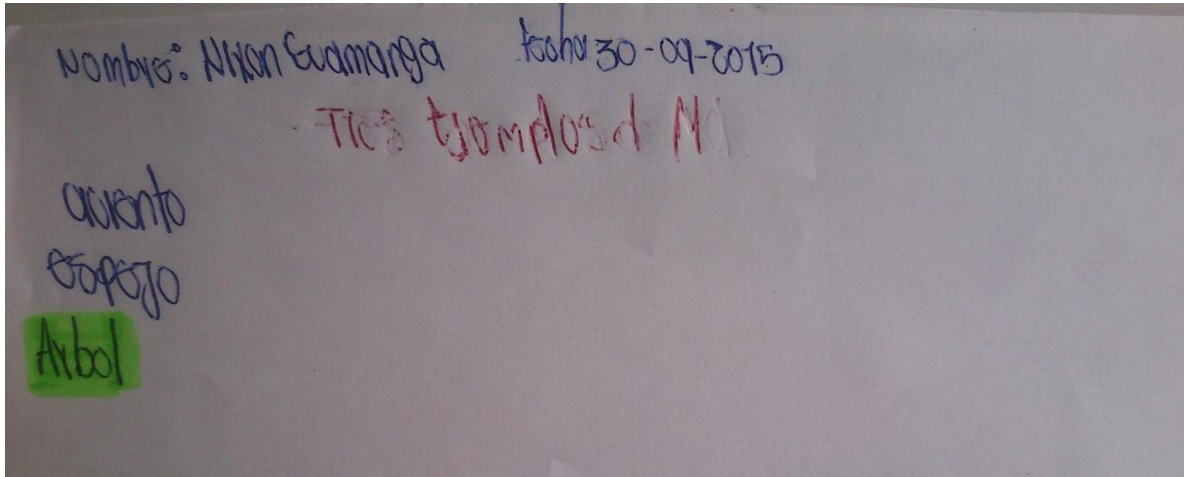 Nombre: Nixon Guamanga fecha 30-09-2015
Tres Ejemplos d
espejo
Arbol